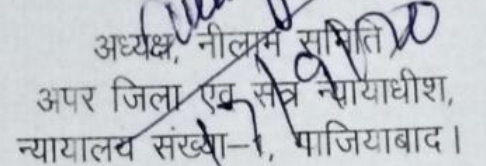 अध्यक्ष, नीलाम समिति
अपर जिला एवं सत्र न्यायाधीश,
न्यायालय संख्या-1, गाजियाबाद।